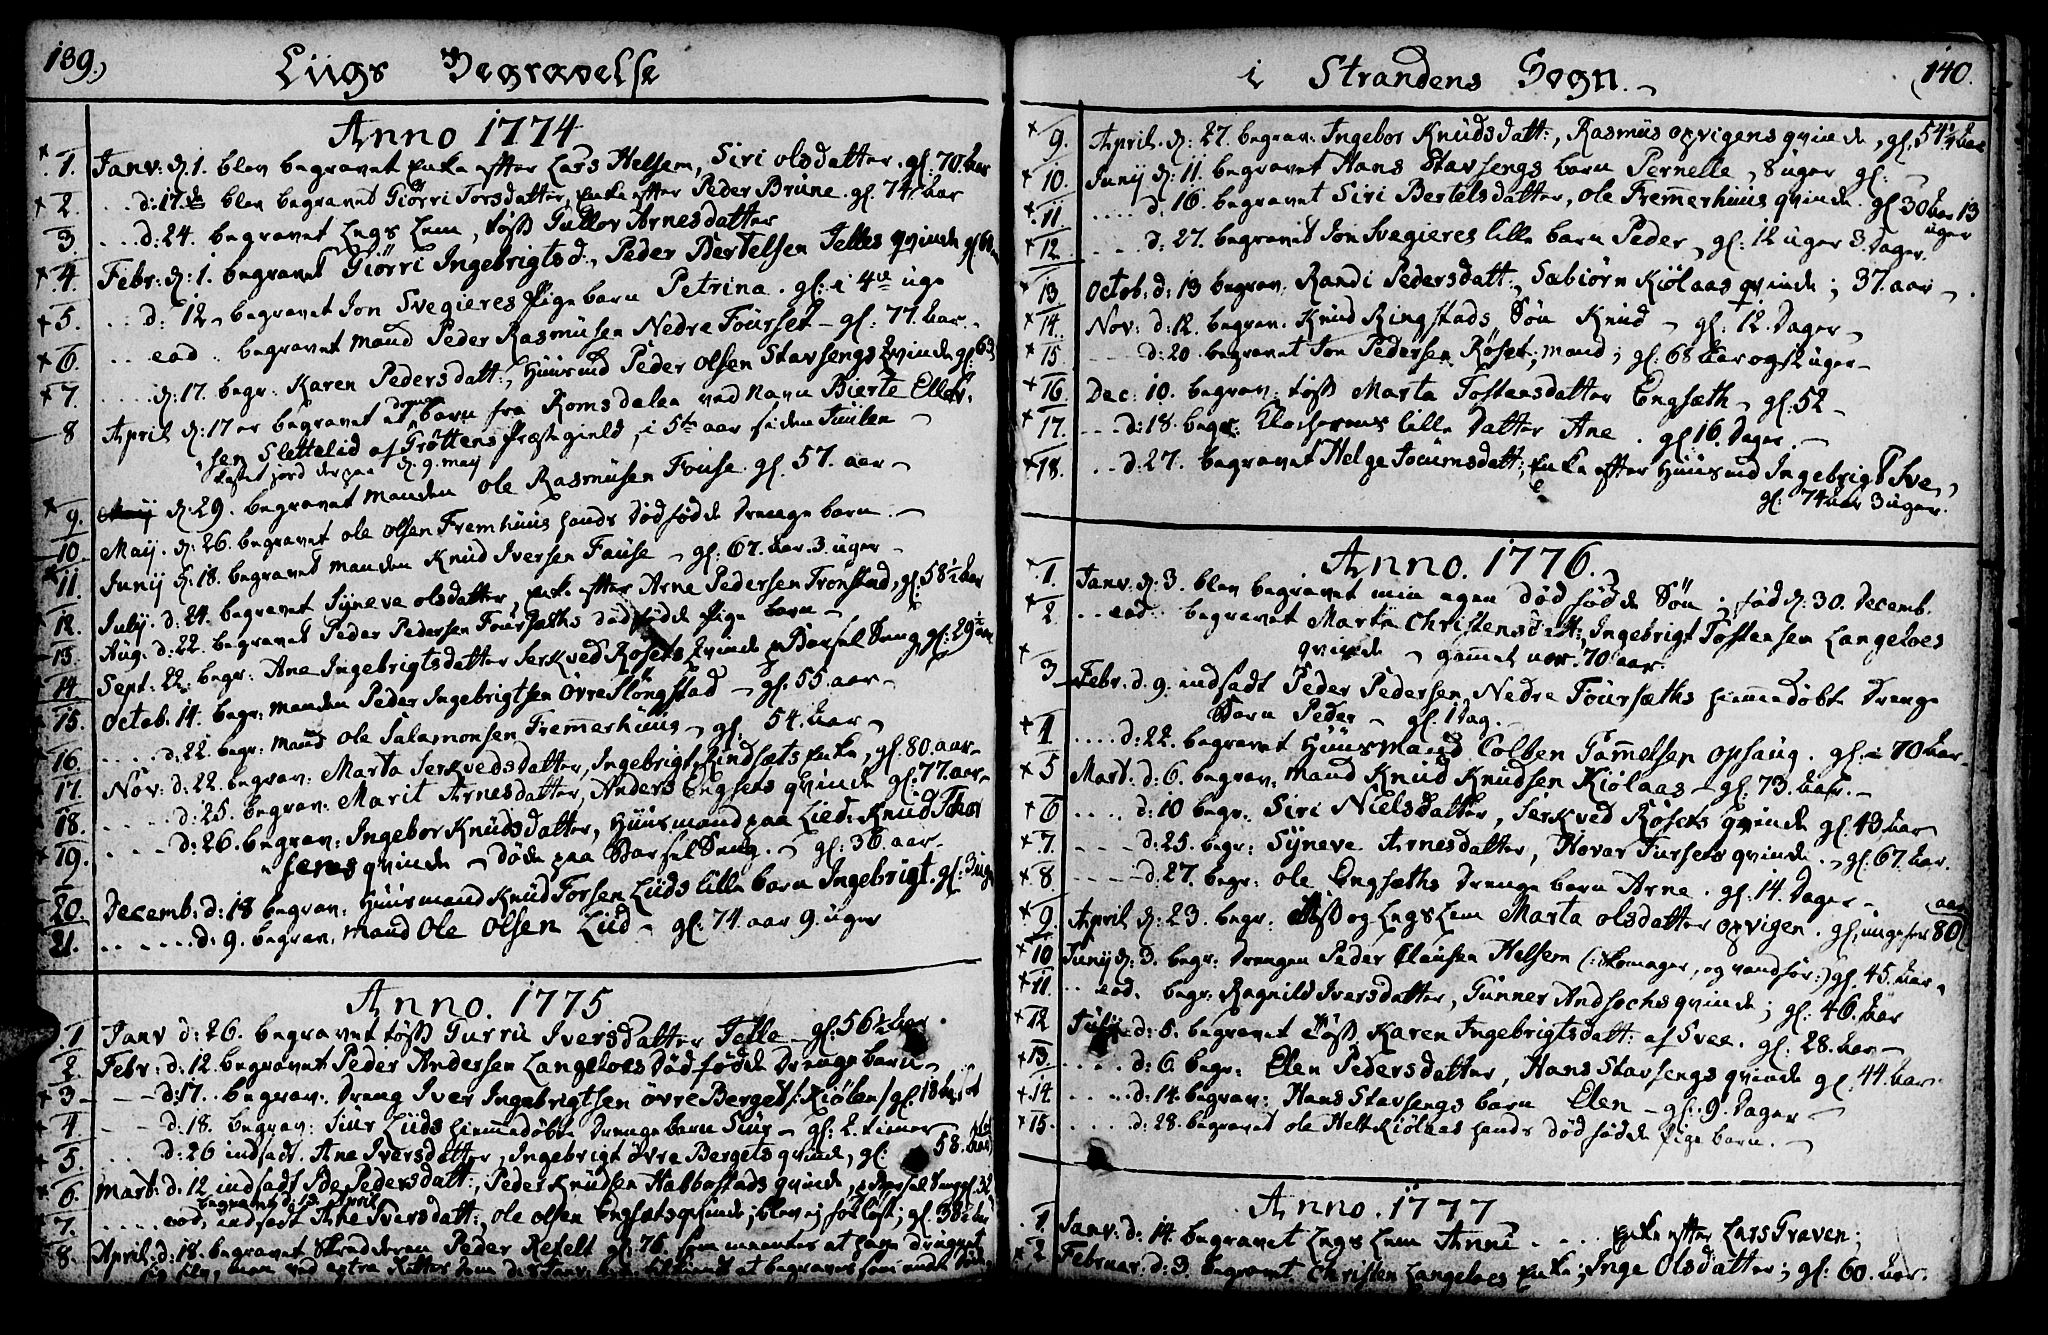 139.)
Liigs Begravelse
Anno 1774
1. Janv: d: 1. blev begravet Enke efter Lars Helsem, Siri olsdatter. gl: 70. aar
2. d: 17de blev begravet Giörri Torsdatter, Enke efter Peder Brune. gl. 74. aar
3. d: 24. begravet Legs Lem, töß Gullov Arnesdatter
4. Febr: d: 1. begravet Giörri Ingebrigtsd:, Peder Bertelsen Jelles qvinde
5. d: 12 begravet Jon Svegieres Pige barn Petrina. gl: i 4de uge
6. eod. begravet mand Peder Rasmusen Nedre Fourset – gl: 77. aar.
7. d: 17. begr: Karen Pedersdatt:, Huusmd Peder Olsen Stavsengs Qvinde gl: 63
8 April d: 17 er begravet et barn fra Romsdalen ved Navn Bierte Ellef-
sen Slettelid af Gröttens Præstegield, i 5te aar siden Juulen
kastet jord derpaa d. 9. may
9. d. 29. begravet manden Ole Rasmusen Fause. gl. 57. aar
10. Maij. d: 26. begravet ole olsen Fremhuus hands Dödfödde Drenge barn.
11 Junij d: 18. begravet manden Knud Iversen Fause – gl: 67. aar. 3. uger
12. July. d: 24. begravet Syneva olsdatter, Enke efter Arne Pedersen Tronstad, gl: 58½ aar
13. Aug. d: 22. begravet Peder Pedersen Foursæths dödfödde Pige barn
14 Sept: 22. begr: Ane Ingebrigtsdatter Serkved Rosets Qvinde, paa Barsel Seng gl: 29½ aar
15. Octob: 14. begr: manden Peder Ingebrigtsen Övre Slöngstad – gl: 55. aar
16. d: 22. begr: mand Ole Salamonsen Fremmerhuus – gl. 54. aar
17. Nov: d: 22. begrav: Marta Serkvedsdatter, Ingebrigt Lindsæts Enke, gl. 80. aar
18. d: 25. begrav: Marit Arnesdatter, Anders Engsets qvinde gl: 77. aar
19. d: 26. begrav: Ingebor Knudsdatter, Huusmand paa Lied: Knud Thor
sens qvinde – döde paa Barsel Seng. – gl: 36. aar.
20. Decemb: d: 18 begrav: Huusmand Knud Torsen Liids lille barn Ingebrigt gl: 3 uger
21. d: 9. begrav: mand Ole Olsen Liid – gl: 74 aar 9. uger
Anno. 1775
1. Janv d: 26. begravet töß Gurru Iversdatter Jelle – gl: 56½ aar
2. Febr: d. 12. begravet Peder Andersen Langeloes Dödfödde Drenge barn
3 d: 17. begrav: Dreng Iver Ingebrigtsen övre Berget
4 d. 18. begrav: Siur Liids hiemmedöbte Drenge barn Siur – gl: 2. timer
5. d: 26 indsadt. Ane Iversdatter, Ingebrigt övre Bergets qvinde, gl: 58. aar
6. Mart: d: 12 indsadt Pedersdatt:, Peder Knudsen Habbostads qvinde, i Barsel Seng gl. 32
begravet d: 18. April
7. eod. indsadt Ane Iversdatt:, Ole olsen Engsæts qvinde; blev ej forlöst; gl: 38½ aar
8. April: d: 18. begravet Skredderen Peder Refelt gl: 76. som meentes at have drugnet

i Strandens Sogn.
(140.
9. April. d: 27. begrav: Ingebor Knudsdatt:, Rasmus opvigens qvinde, gl. 54¼ aar
10. Junij d: 11. begravet Hans Stavsengs barn Pernelle, 8 uger gl:
11 d. 16. begravet Siri Bertelsdatter, ole Fremmerhuus qvinde. gl 30 aar 13 uger
12 d: 27. begravet Jon Svegieres lille barn Peder, gl: 12 uger 3. Dager.
13 Octob: d: 13 begrav: Randi Pedersdatt:, Sabiörn Kiölaas qvinde; 37. aar
14. Nov: d: 12. begrav. Knud Ringstads Sön Knud – gl: 12. Dager
15 d: 20. begravet Jon Pedersen Röset; mand; gl: 68 aar og 2 uger
16 Dec: 10. begrav: töß Marta Tostensdatter Engsæth – gl: 52
17. d: 18. begr: Klockerens lille Datter Ane. gl 16. Dager.
18. d. 27. begravet Helge Joensdatt:, Enke efter Huusmd Ingebrigt Sve,
gl: 74 aar 3 uger.
Anno. 1776.
1. Janv. d: 3. blev begravet min egen Död födde Sön; föd d: 30. Decemb.
2. eod begravet Marta Christensdatt: Ingebrigt Tostensen Langeloes
qvinde – gammel 70 aar.
3 Febr. d. 9. indsadt Peder Pedersen Nedre Foursæths hiemmedöbte Drenge
Barn Peder – gl. 1 Dag.
d: 22. begravet Huusmand Colben Gammelsen opsaug. gl: 70 aar
5 Mart: d: 6. begrav: mand Knud Knudsen Kiölaas – gl: 73. aar.
6 d: 10 begr: Siri Nielsdatter, Serkved Rösets qvinde gl: 43. aar
7. d: 25. begr: Syneve Arnesdatter, Hovar Fursets qvinde. gl: 67. aar.
8. d: 27. begr: ole Engsæths Drenge barn Arne. gl: 14. Dager
9. April d: 23. begr: töß og Legs Lem Marta olsdatter opvigen. gl. ungefer 80 aar
10 Junij d: 3. begr: Drengen Peder Clausen Helsem (: Skomager, og vandför :) gl. 45. aar
11. eod. begr: Ragnild Iversdatter, Gunner Andsochs qvinde; gl: 46. aar
12 July d: 5. begravet Töß Karen Ingebrigtsdatt: af Svee. gl: 28. aar
13. d: 6. begr: Elen Pedersdatter, Hans Stavsengs qvinde gl: 44. aar
14. d: 14. begrav: Hans Stavsengs barn Elen – gl: 9. Dager
15. d: 28. begravet ole Kiölaas hands död födde Pige barn.
Anno. 1777
1. Janv: d: 14. begravet Legs Lem Anni . . . . Enke efter Lars Graven;
2. Februar: d: 3. begravet Christen Langeloes Enke; Inge Olsdatter; gl: 60. aar.